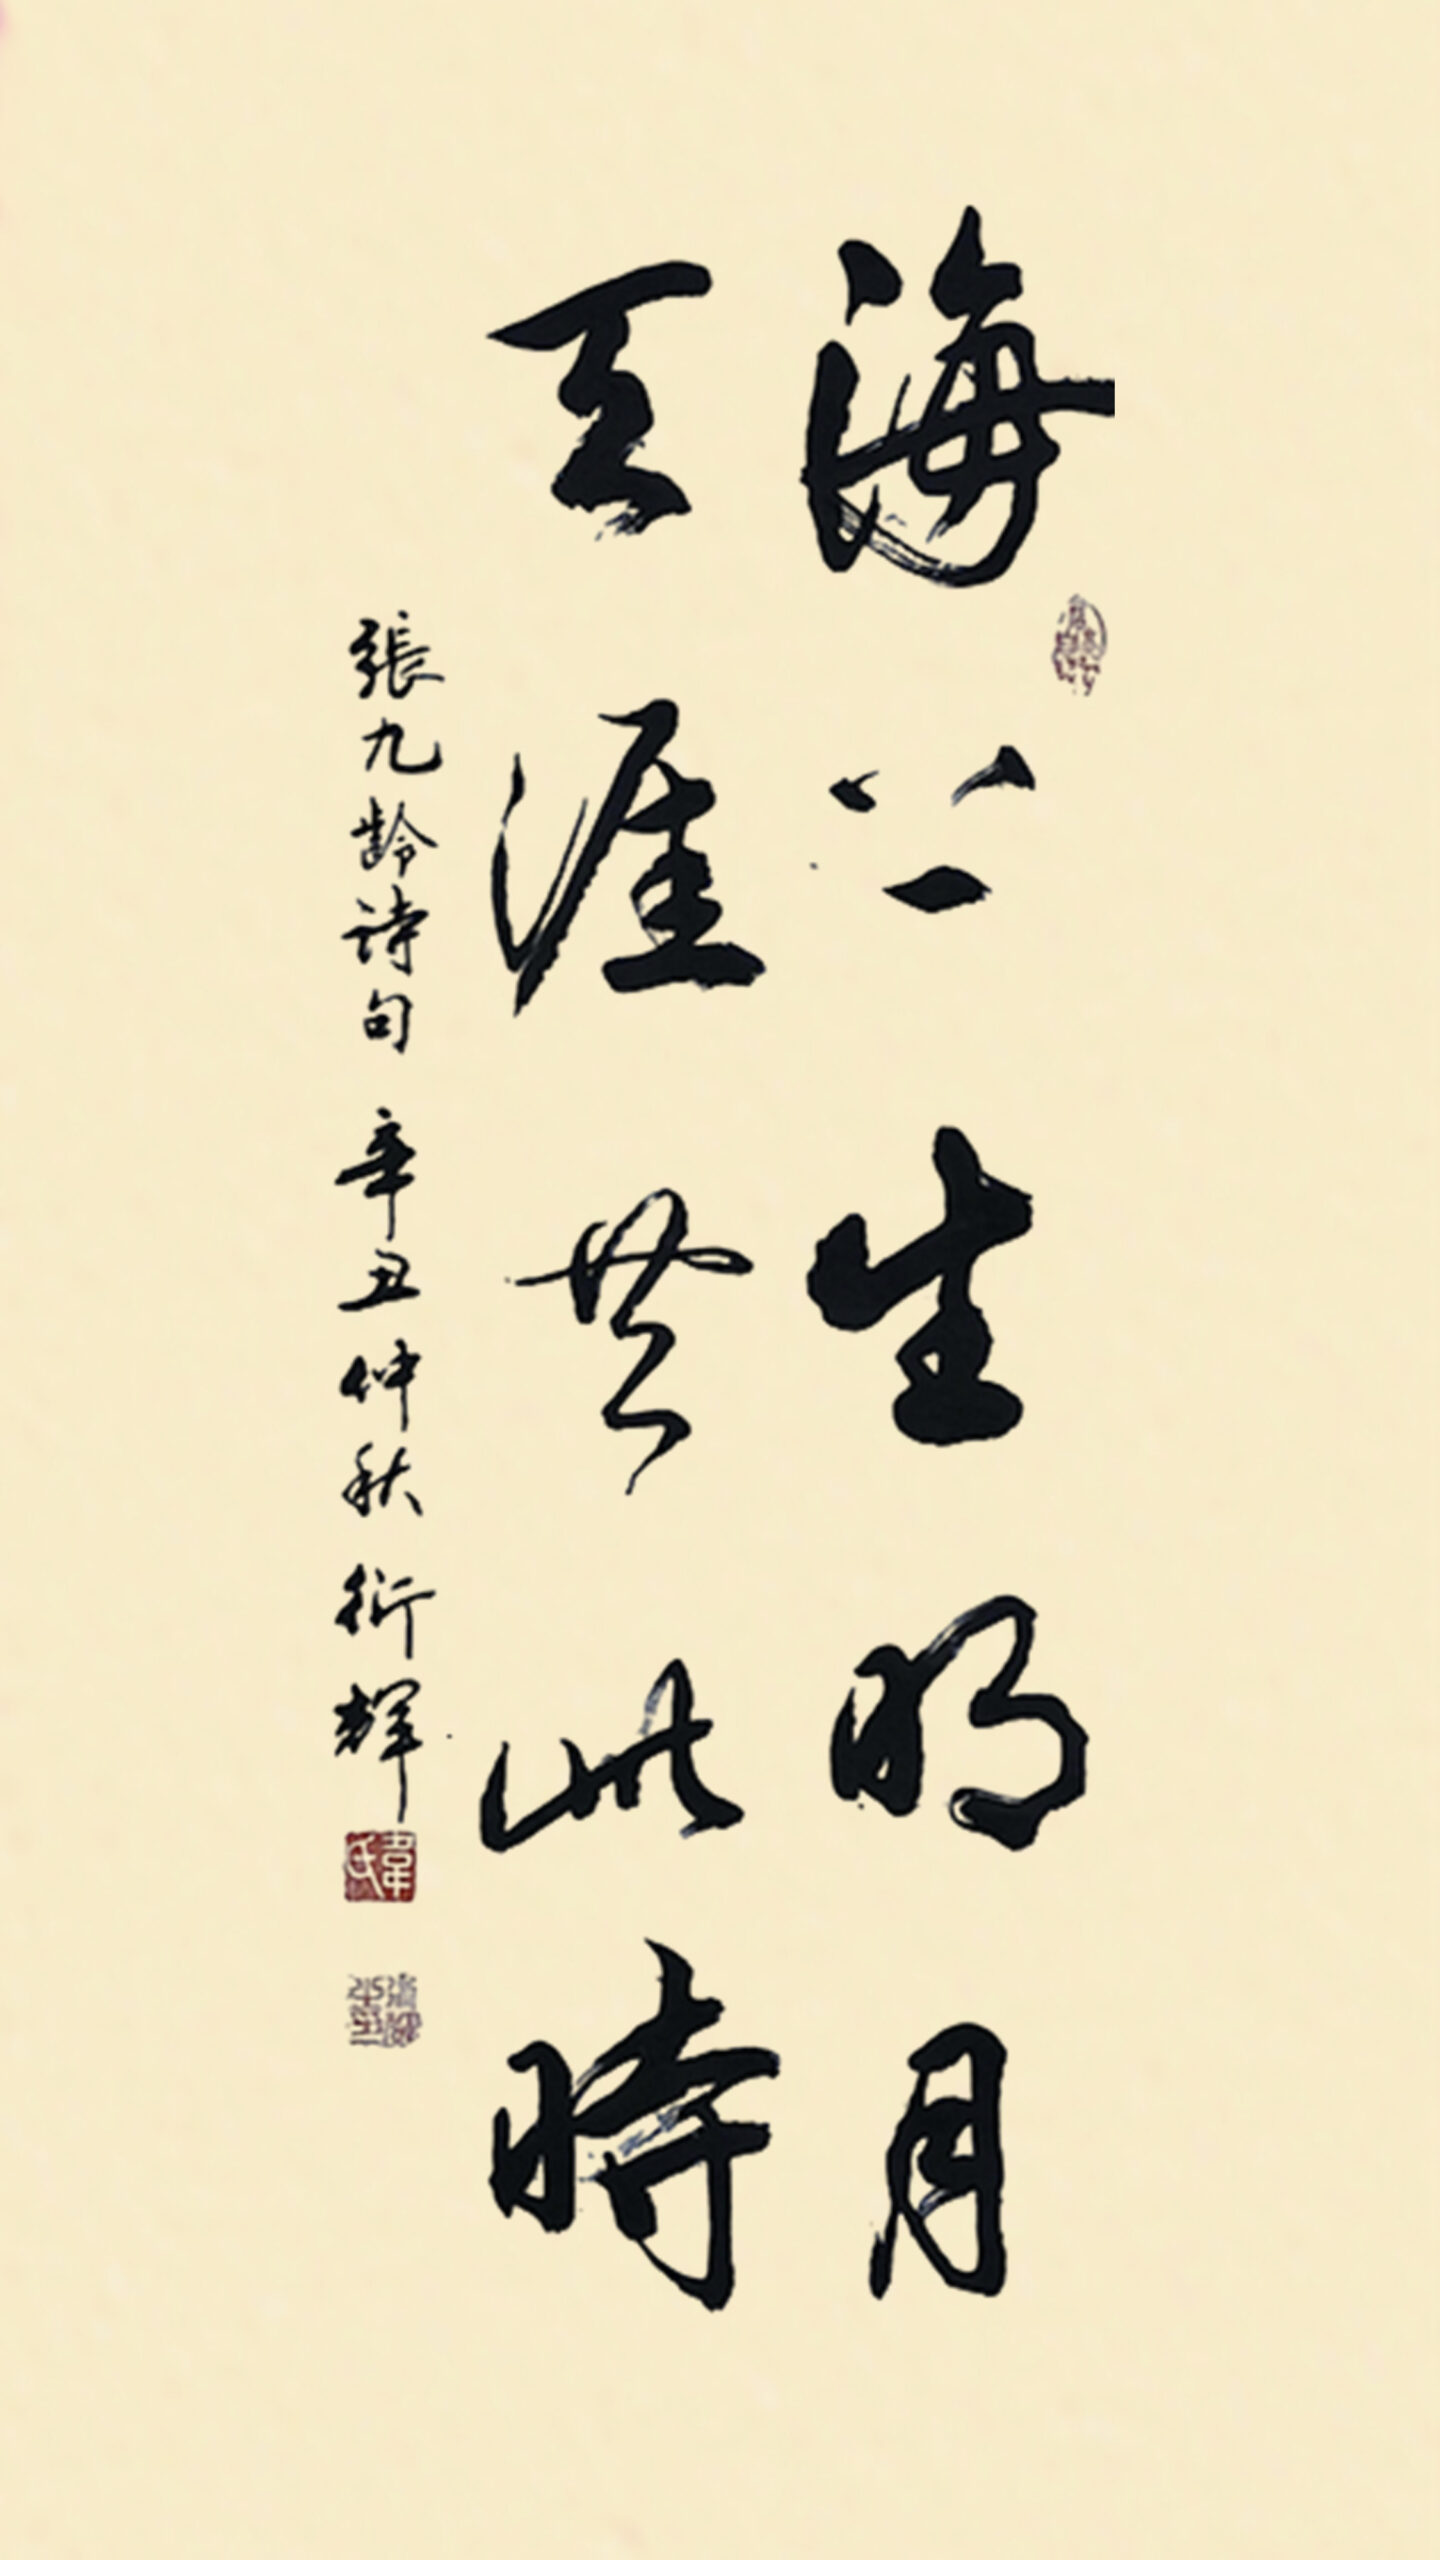 海上生明月
天涯共此時
張九龄詩句 辛丑仲秋 衍輝
韋氏